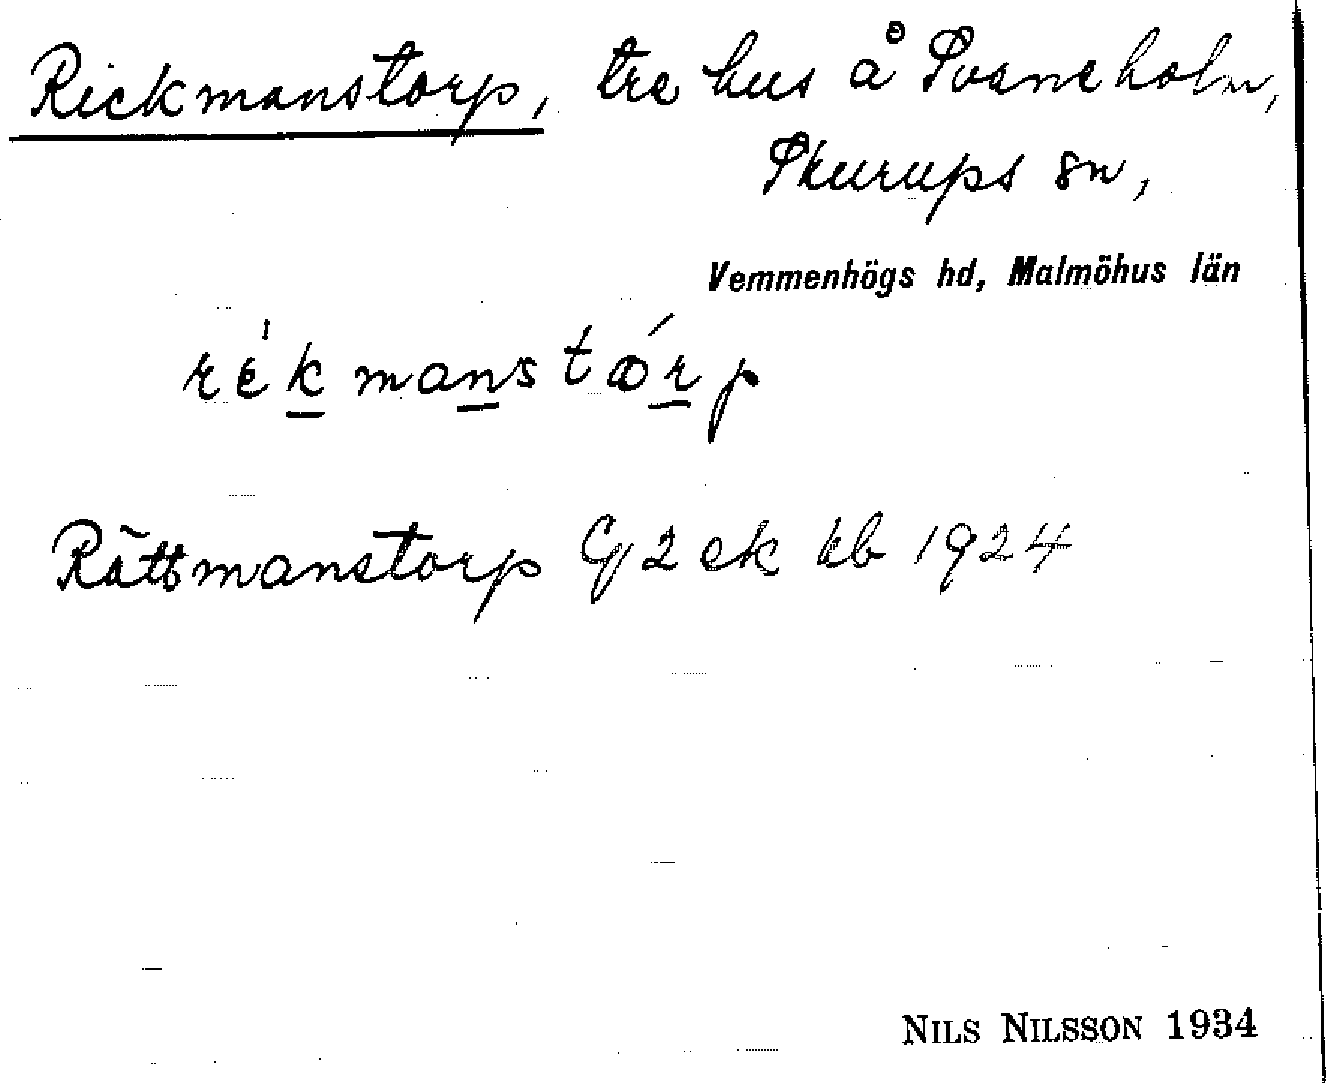 Rickmanstorp, tre hus å Svaneholm,
Skurups sn,
Vemmenhögs hd, Malmöhus län
rékmanstǿrp
Rättmanstorp G 2 ek kb 1924
NILS NILSSON 1934